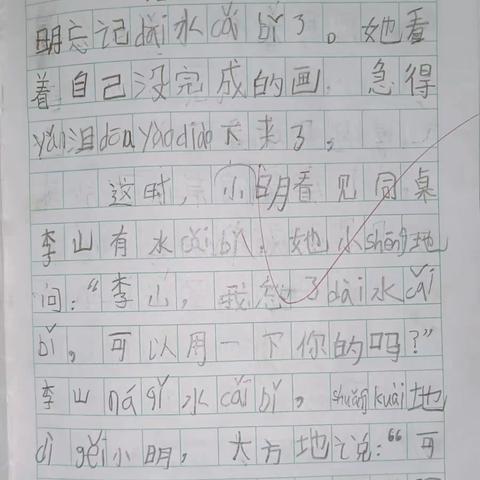 明忘记dài水cǎi bǐ了。她看
着自己没完成的画,急得
yǎn泪dōu yào diào下来了,
这时,小明看见同桌
李山有水cǎi bǐ,她小shēng地
问:“李山,我忘了dài水cǎi
bǐ,可以用一下你的吗?”
李山ná qǐ水cǎi bǐ,shuǎng kuài地
dì gěi小明,大方地说:“可